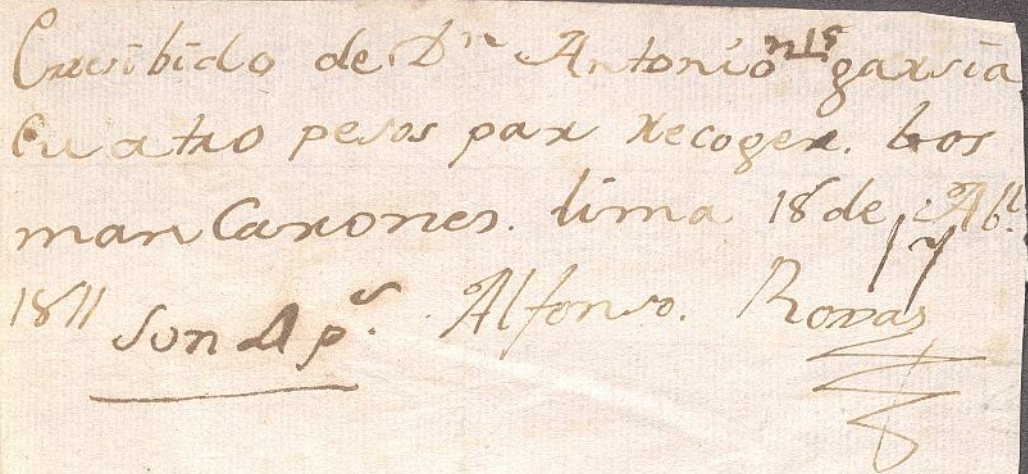 Er resibido de Dn Antonio garsia
Cuatro pesos par recoger. Los
mancarrones. lima 18 de Abl.
1811 Son 4 ps. Alfonso. Rovas